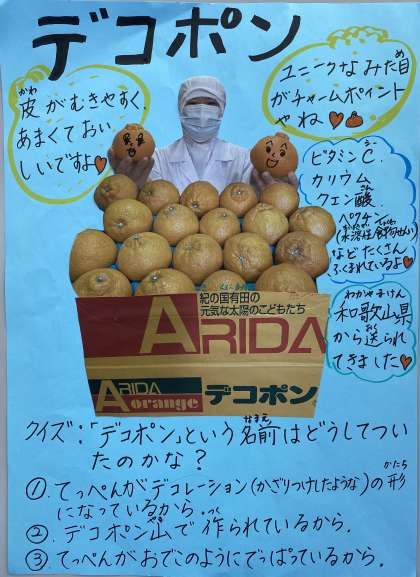 デコポン
皮がむきやすく、
あまくておい
しいですよ
ユニークなみた目
がチャームポイント
やね
ビタミンC、
カリウム
クエン酸、
ペクチン
(水溶性食物せんい)
などたくさん
ふくまれているよ
和歌山県
から送られ
てきました
紀の国有田の
元気な太陽のこどもたち
ARIDA
ARIDA
A orange
デコポン
クイズ:「デコポン」という名前はどうしてつい
たのかな?
①.てっぺんがデコレーション(かざりつけしたような)の形
になっているから.
②.デコポン山で作られているから.
③.てっぺんがおでこのようにでっぱっているから.